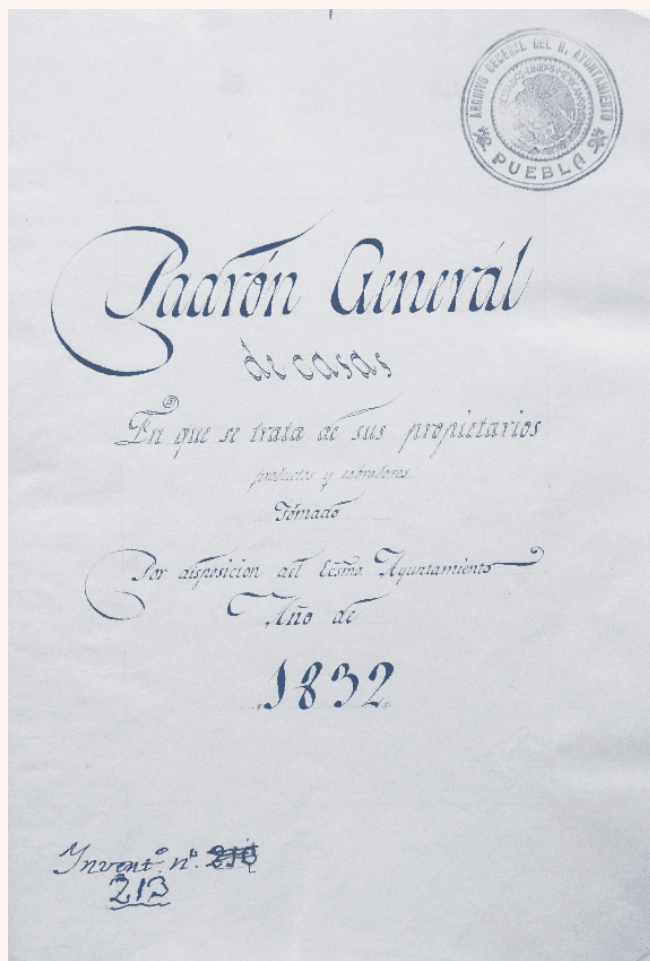 ARCHIVO GENERAL DEL H. AYUNTAMIENTO
ESTADOS UNIDOS MEXICANOS
PUEBLA
Padrón Generál
de casas
En que se trata de sus propietarios
productos y cobradores
Fórmado
Por disposicion del Ecsmo. Ayuntamiento
Año de
1832
Invent.º n.º
213